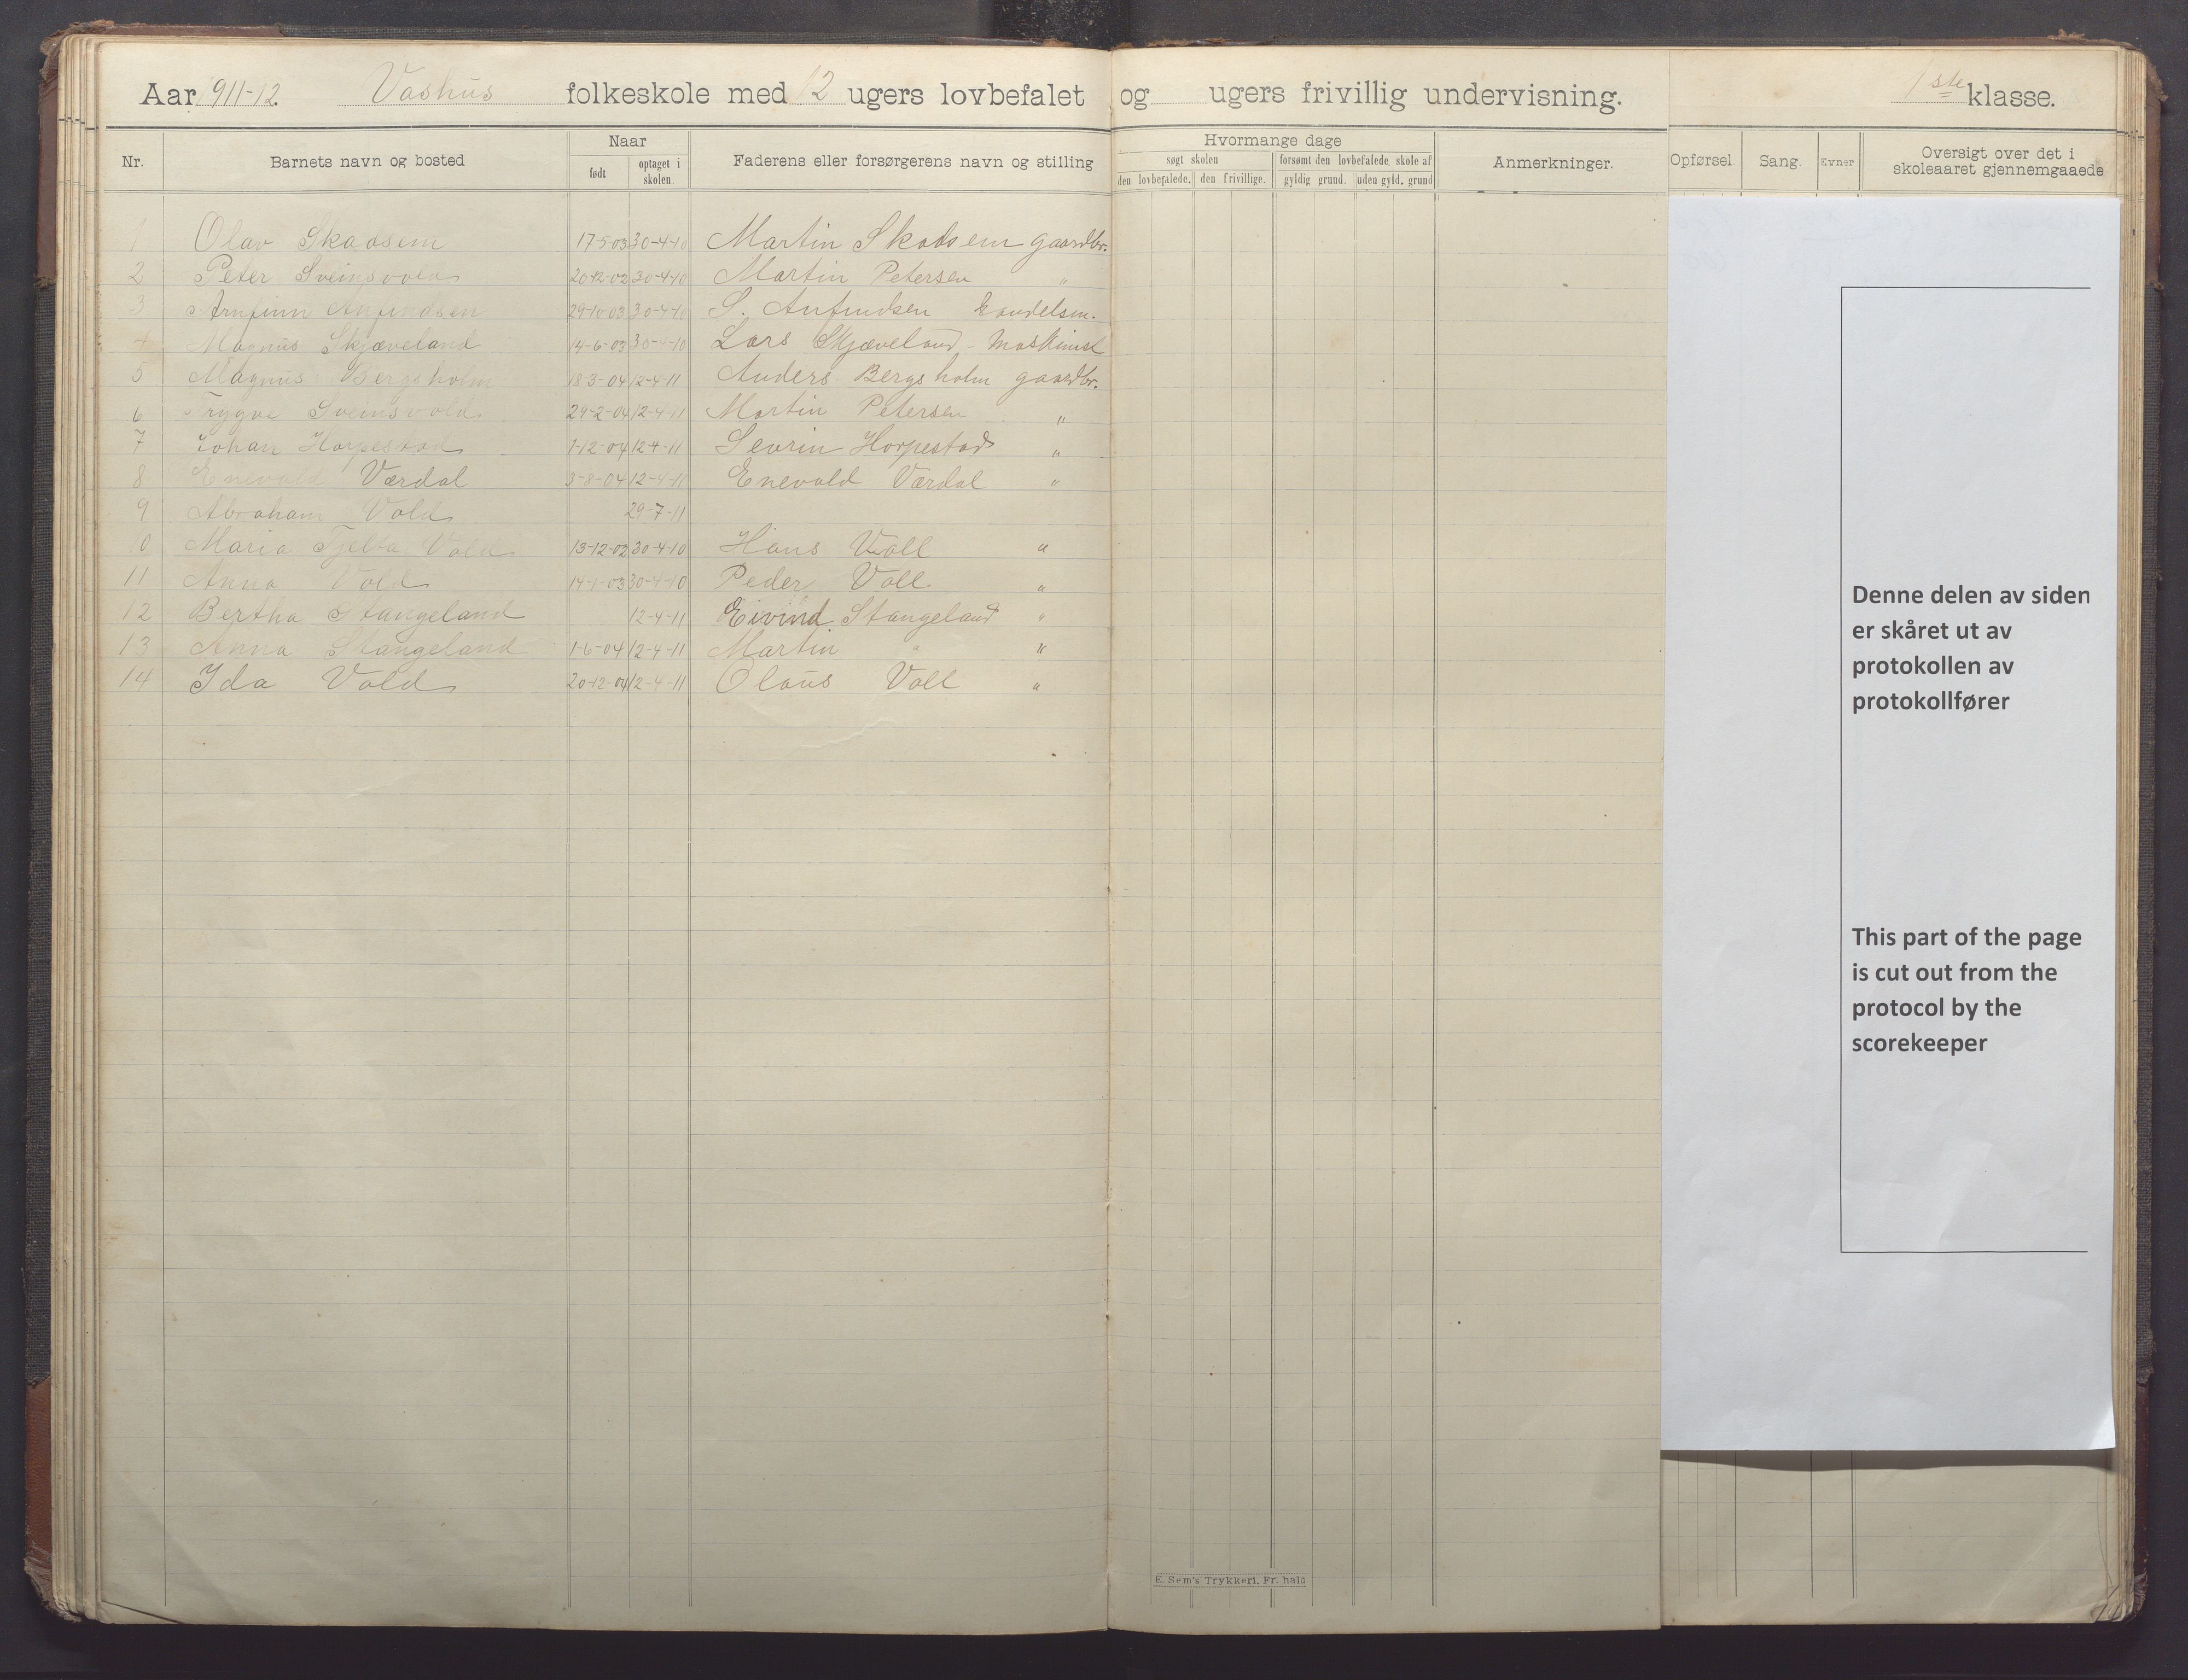 Aar 1911-12. Vashus folkeskole med 12 ugers lovbefalet og ugers frivillig undervisning. 1ste klasse.
Nr. Barnets navn og bosted Naar født optaget i skolen. Faderens eller forsørgerens navn og stilling Hvormange dage søgt skolen den lovbefalede. den frivillige. forsømt den lovbefalede skole af gyldig grund. uden gyld. grund Anmerkninger. Opførsel. Sang. Evner Oversigt over det i skoleaaret gjennemgaaede
1 Olav Skadsem 17-5-03 30-4-10 Martin Skadsem gaardbr.
2 Peter Sveinsvold 20-12-02 30-4-10 Martin Petersen "
3 Arnfinn Anfindsen 29-10-03 30-4-10 S. Anfindsen Handelsm.
4 Magnus Skjæveland 14-6-03 30-4-10 Lars Skjæveland - Maskinist
5 Magnus Bergsholm 18-3-04 12-4-11 Anders Bergsholm gaardbr.
6 Trygve Sveinsvold 29-2-04 12-4-11 Martin Petersen "
7 Johan Horpestad 1-12-04 12-4-11 Sevrin Horpestad "
8 Enevald Værdal 3-8-04 12-4-11 Enevald Værdal "
9 Abraham Vold 29-7-11
10 Maria Tjelta Vold 13-12-02 30-4-10 Hans Voll "
11 Anna Vold 14-1-03 30-4-10 Peder Voll "
12 Bertha Stangeland 12-4-11 Eivind Stangeland "
13 Anna Stangeland 1-6-04 12-4-11 Martin " "
14 Ida Vold 20-12-04 12-4-11 Olaus Voll "
Denne delen av siden
er skåret ut av
protokollen av
protokollfører
This part of the page
is cut out from the
protocol by the
scorekeeper
E. Sem's Trykkeri, Fr. hald